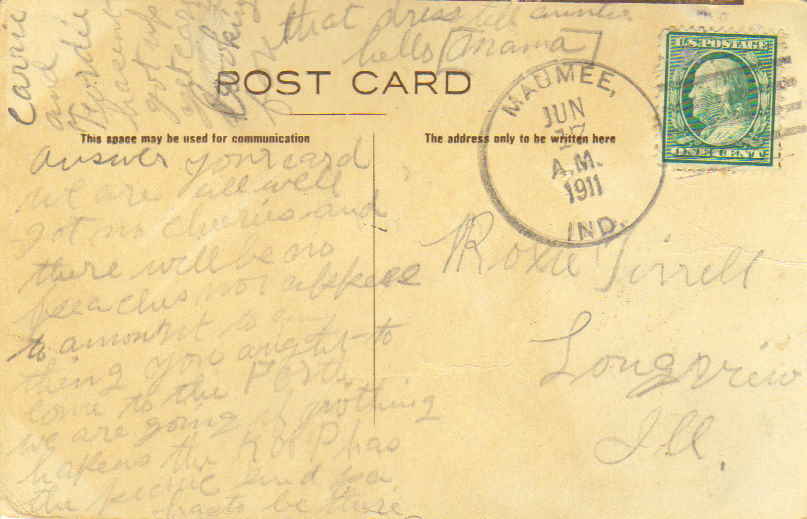 Carrie
and
Hordie
hasent
got up
yet
Looking
that dress tell auntie
hello mama
POST CARD
MAUMEE,
JUN
17
A.M.
1911
IND.
U.S. POSTAGE
ONE CENT
This space may be used for communication
The address only to be written here
answer your card
we are all well
got no cherries and
there will be no
peaches nor appels
to amount to any
thing you aught to
come to the
we are going if nothing
hapens the K of P has
the picnic and
has to be there
Roxie Tirrell
Longview
Ill.